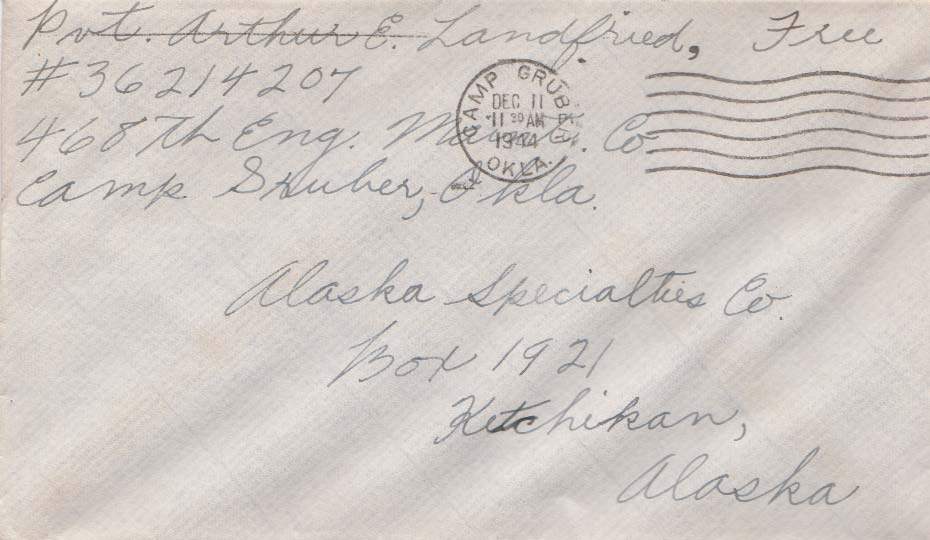 Pvt. Arthur E. Landfried, Free
#36214207
468th Eng. Co
Camp Gruber, Okla.
CAMP GRUBER
DEC 11
11 30 AM
1944
OKLA.
Alaska Specialties Co.
Box 1921
Ketchikan,
Alaska